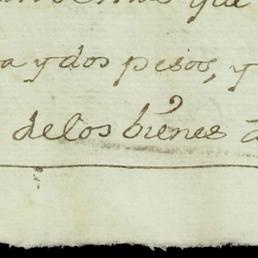 que
a y dos pesos, y
de los bienes